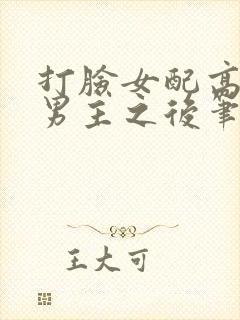 打臉女配高
男主之後筆
王大可